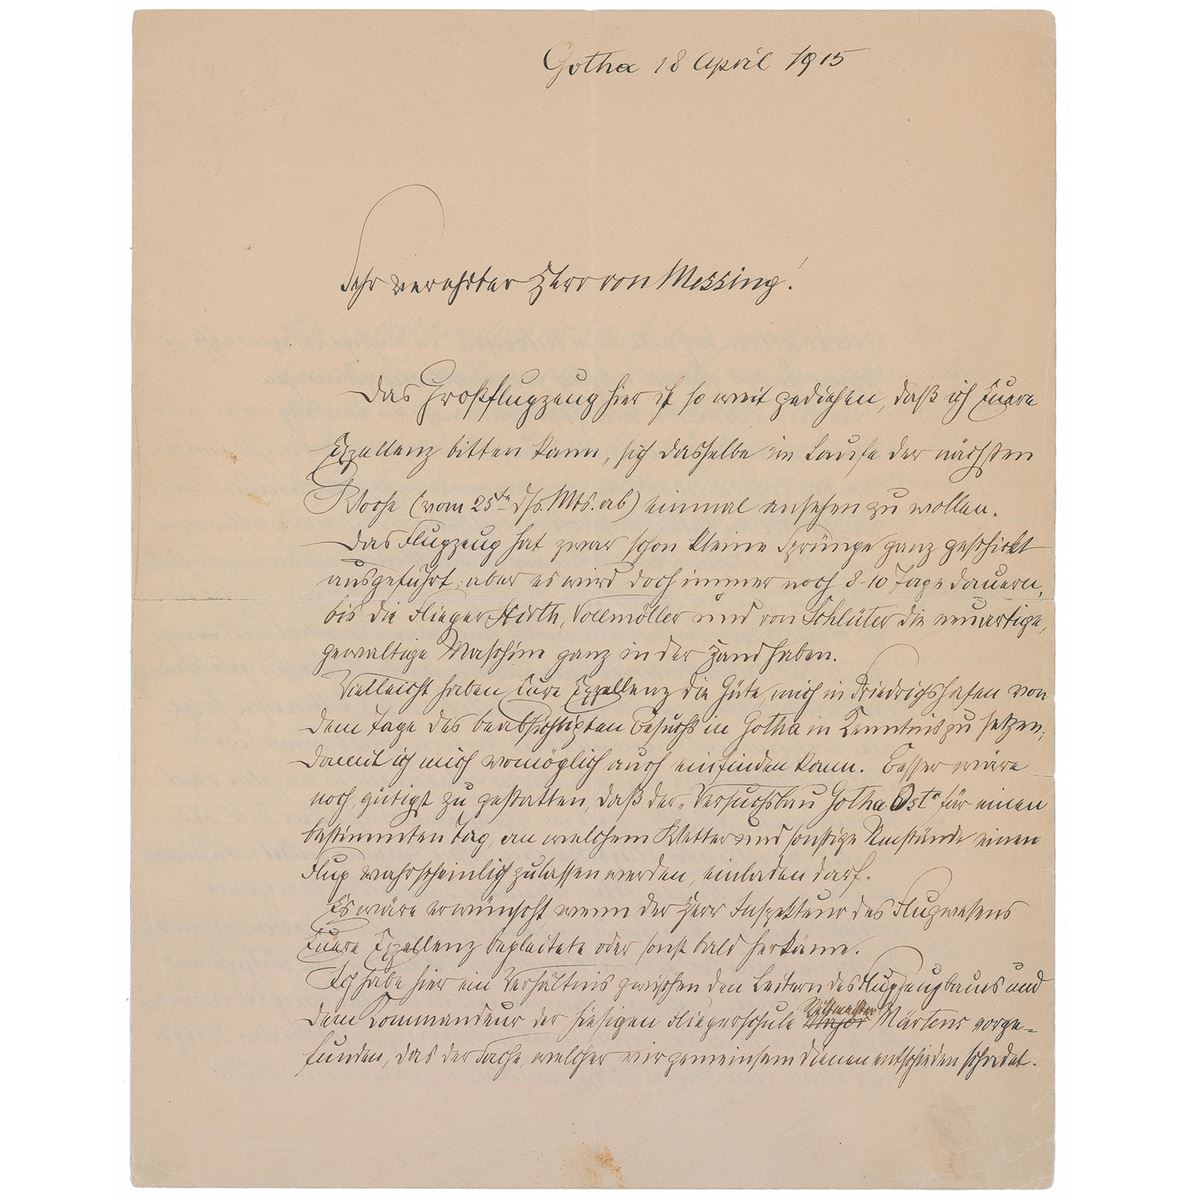 Gotha 18 April 1915
Sehr verehrter Herr von Messing!
Das Großflugzeug hier ist so weit gediehen, daß ich Euere
Exzellenz bitten kann, sich dasselbe im Laufe der nächsten
Woche (vom 25ten d/s. Mts. ab) einmal ansehen zu wollen.
Das Flugzeug hat zwar schon kleine Sprünge ganz geschickt
ausgeführt, aber es wird doch immer noch 8-10 Tage dauern,
bis die Flieger Hirth, Vollmöller und von Schlüter die neuartige,
gewaltige Maschine ganz in der Hand haben.
Vielleicht haben Eure Exzellenz die Güte, mich in Friedrichshafen von
dem Tage des beabsichtigten Besuchs in Gotha in Kenntnis zu setzen,
damit ich mich womöglich auch einfinden kann. Besser wäre
noch, gütigst zu gestatten, daß der „Versuchsbau Gotha Ost" für einen
bestimmten Tag, an welchem Wetter und sonstige Umstände einen
Flug wahrscheinlich zulassen werden, einladen darf.
Es wäre erwünscht wenn der Herr Inspekteur des Flugwesens
Euere Exzellenz begleitete oder sonst bald herkäme.
Ich habe hier ein Verhältnis zwischen den Leitern des Flugzeugbaus und
dem Kommandeur der hiesigen Fliegerschule Major Rittmeister Märtens vorge-
funden, das der Sache, welcher wir gemeinsam dienen entschieden schadet.